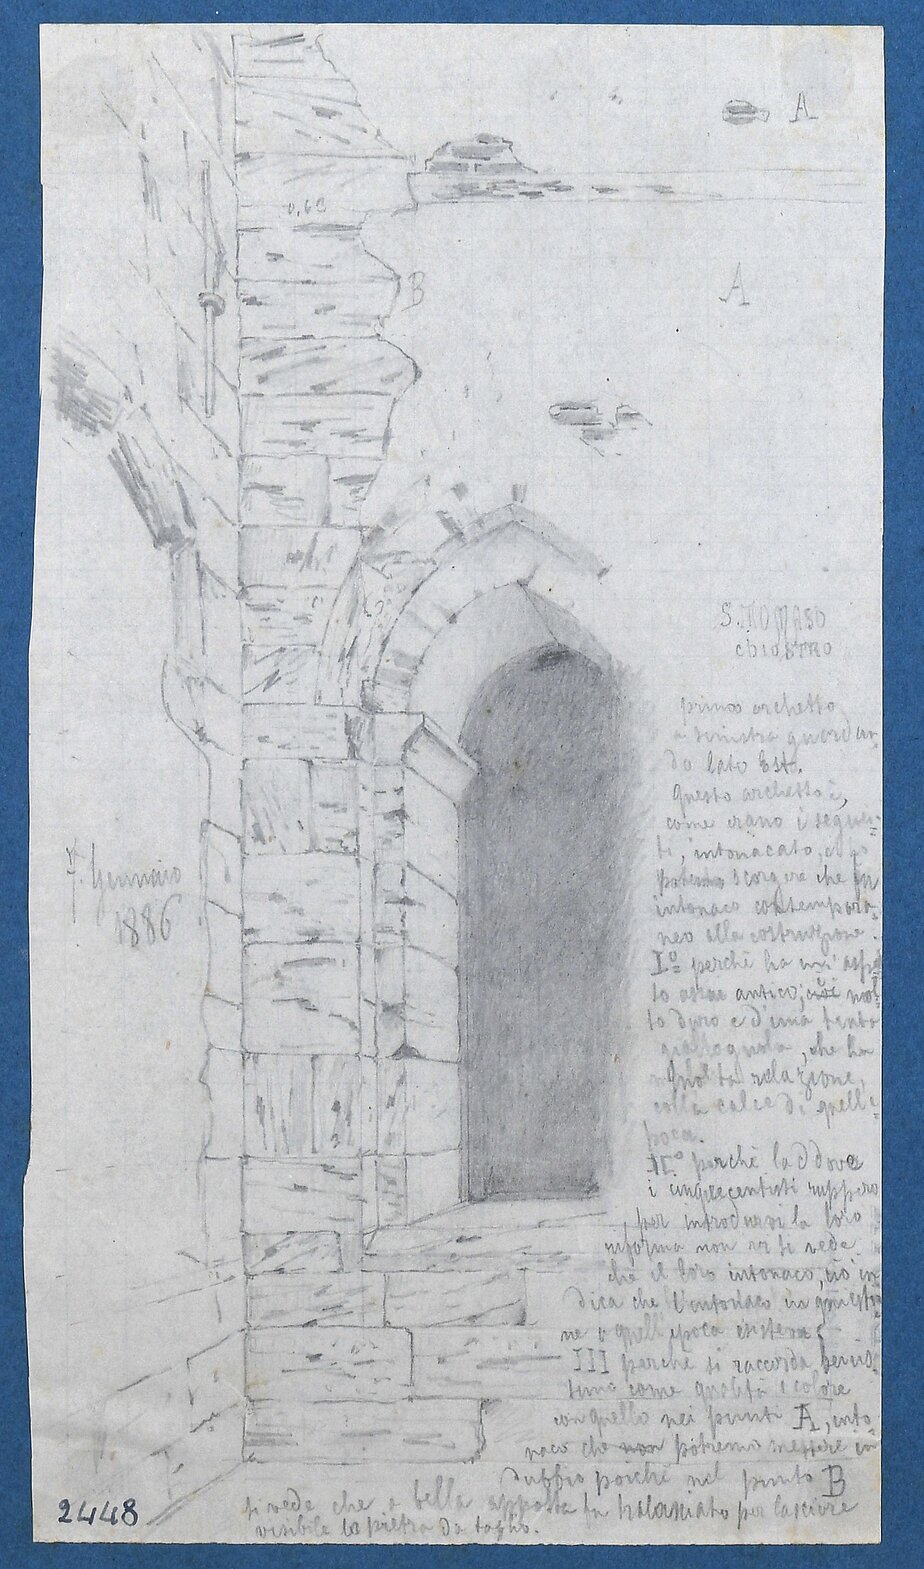 A
0,60
B
A
S. TOMASO
CHIOSTRO
7. Gennaio
1886
primo archetto
a sinistra guardan-
do lato Est.
Questo archetto è,
come erano i seguen=
ti, intonacato, e
scorgere che
intonaco contempora=
neo alla costruzione.
I.º perchè ha un' aspet
to assai antico, cioè mol
to duro e d'una tinta
che ha
molta relazione,
colla calce di quell'e=
poca.
II.º perchè laddove
i cinquecentisti ruppero
per introdurvi la loro
informa non vi si vede
che il loro intonaco, ciò in
dica che l'intonaco in questio
ne a quell'epoca esisteva;
III perchè si raccorda benis=
simo come qualità e colore
con quello nei punti A, into
naco che non potremo mettere in
dubbio poichè nel punto B
si vede che a bella apposta fu per lasciare
visibile la pietra da taglio.
2448